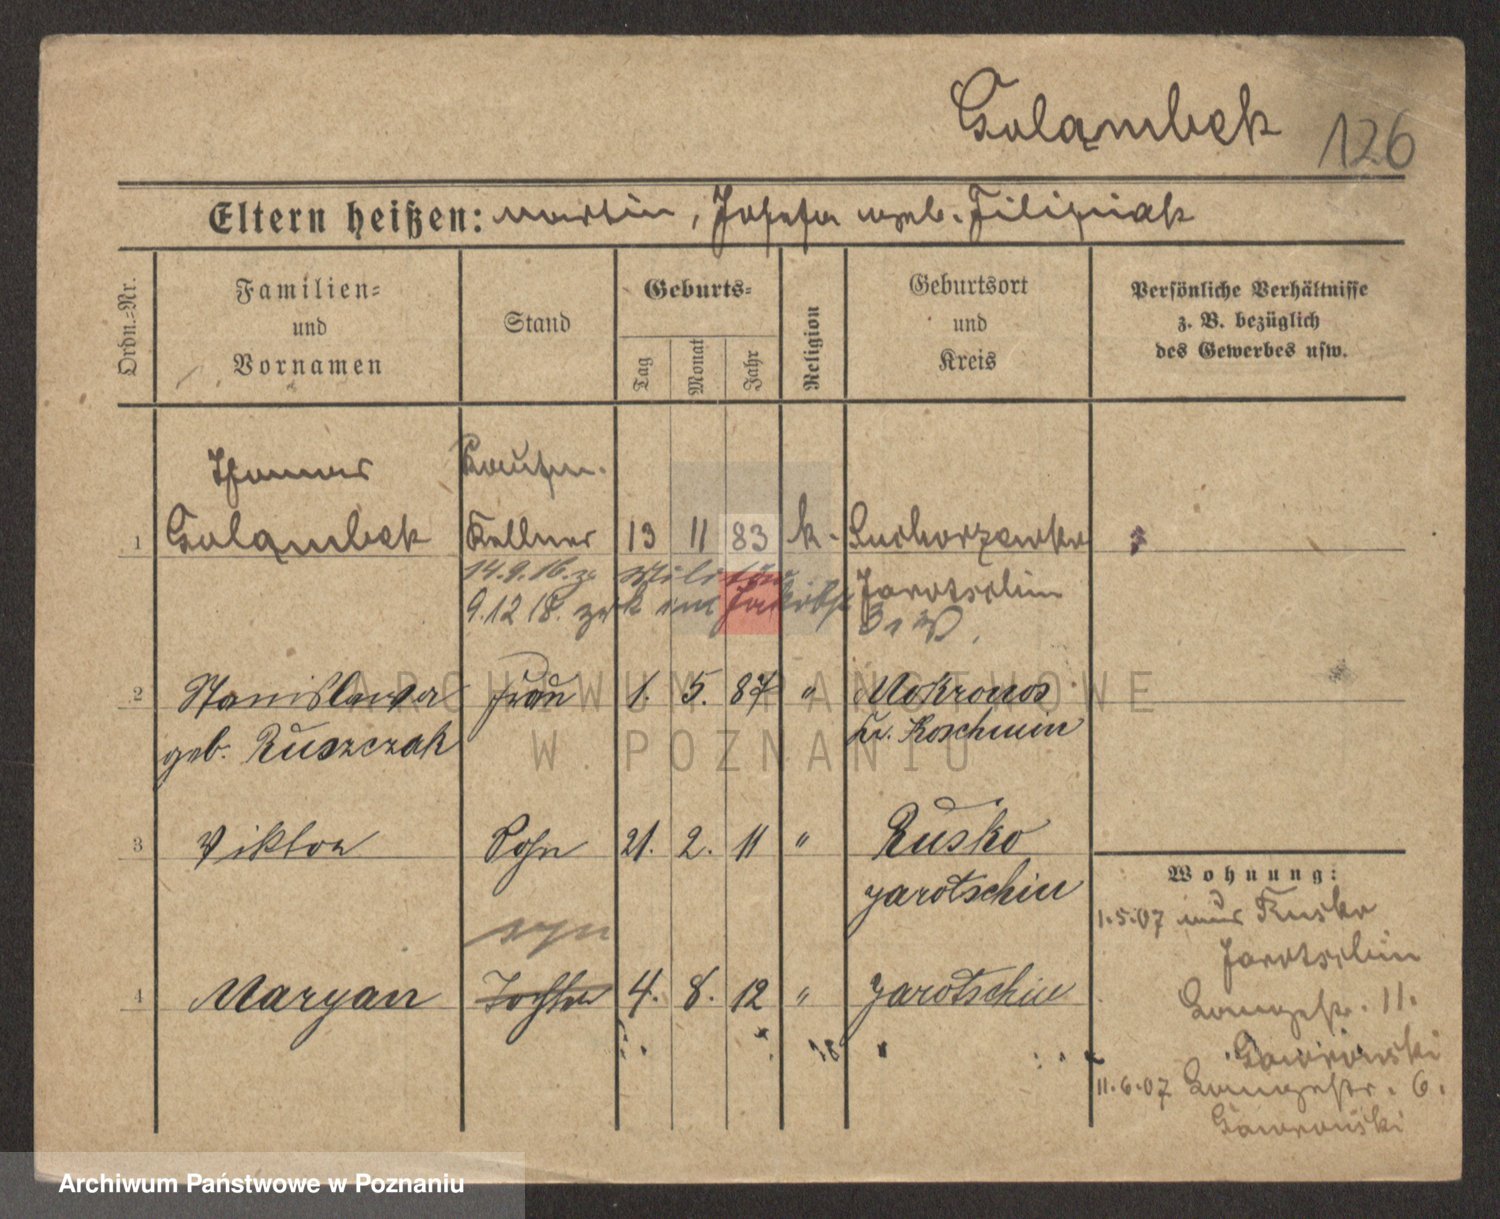 Goląmbek 126
Eltern heißen: Martin, Josefa geb. Filipiak
Ordn.-Nr.
Familien-
und
Vornamen
Stand
Geburts-
Tag
Monat
Jahr
Religion
Geburtsort
und
Kreis
Persönliche Verhältnisse
z. B. bezüglich
des Gewerbes usw.
Thomas Kaufm.
1 Goląmbek Kellner 13 11 83 k. Suchorzewko
14.9.16. z. Militär Jarotschin
9.12.18. zrk
2 Stanislawa Frau 1. 5. 87 " Mokronos
geb. Ruszczak Kr. Koschmin
3 Viktor Sohn 21. 2. 11 " Rusko
Jarotschin
syn
4 Maryan Tochter 4. 8. 12 " Jarotschin
18
Wohnung:
1.5.07 aus Rusko
Jarotschin
Langestr. 11.
Gaworowski
11.6.07 Langestr. 6.
Gaworowski
ARCHIWUM PAŃSTWOWE
W POZNANIU
Archiwum Państwowe w Poznaniu